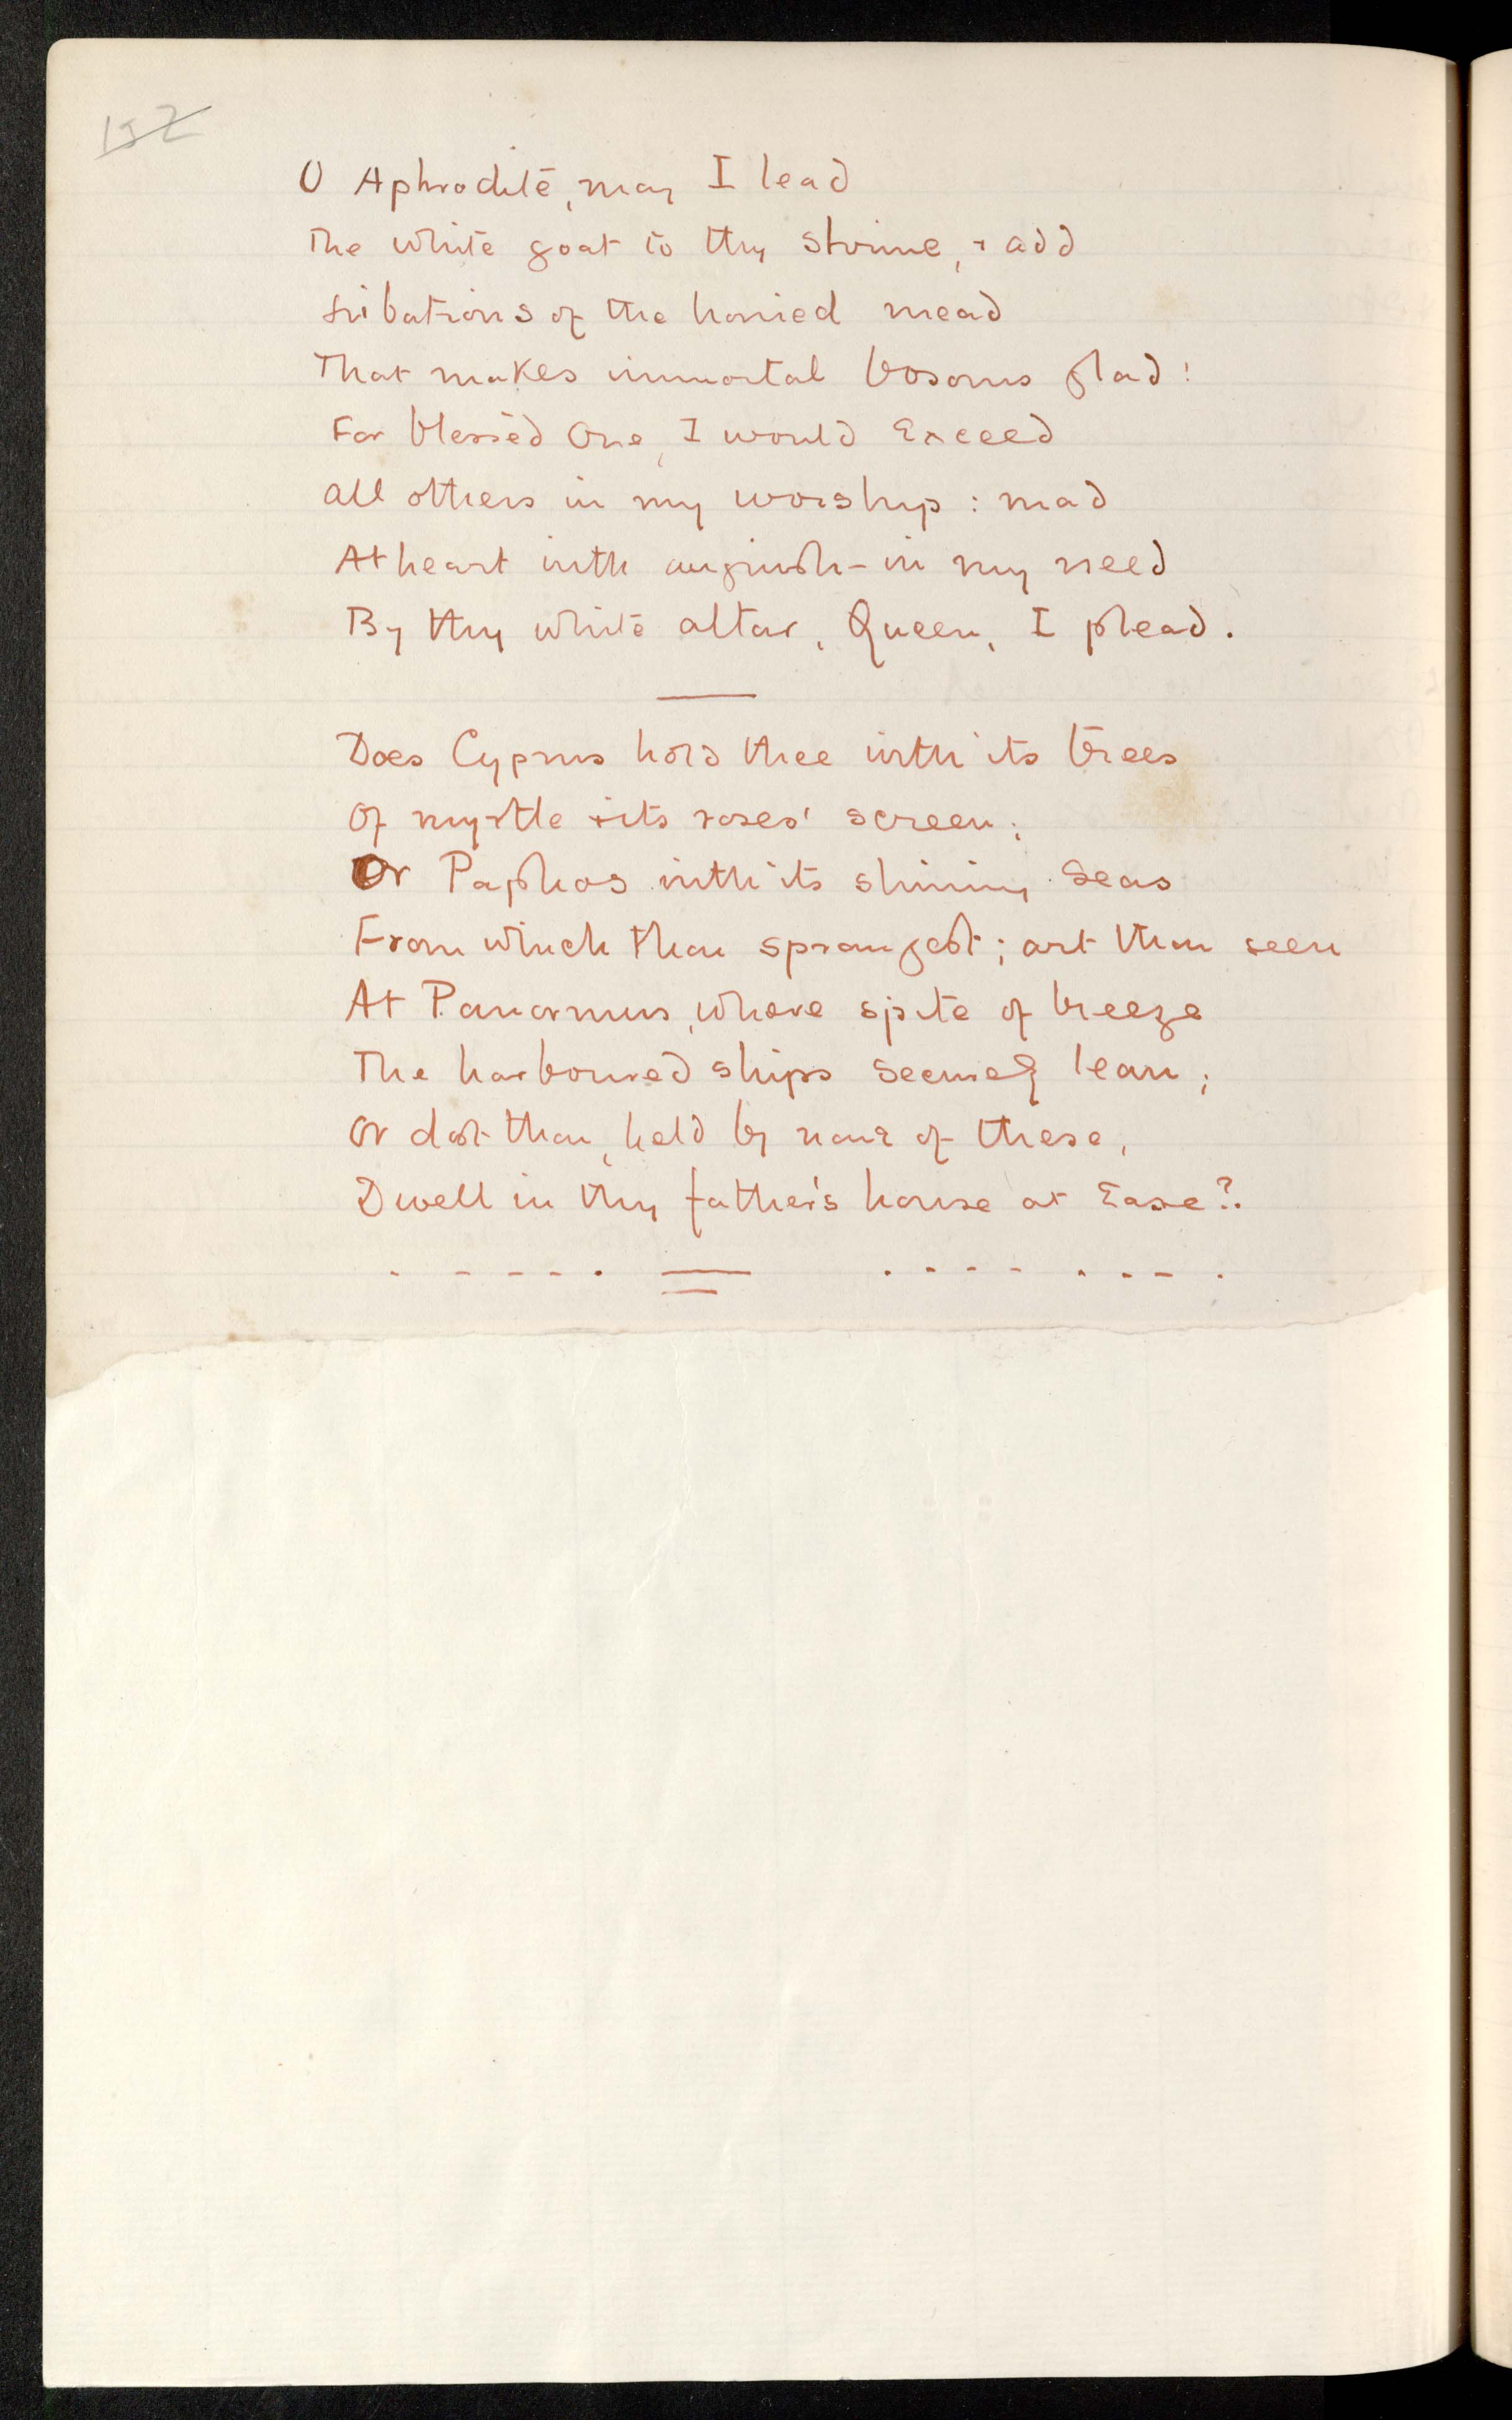 152
O Aphroditē, may I lead
The white goat to thy shrine, & add
Libations of the honied mead
That makes immortal bosoms glad!
For blessèd One, I would Exceed
all others in my worship: mad
At heart with anguish – in my need
By thy white altar, Queen, I plead.
Does Cyprus hold thee with its trees
Of myrtle & its roses' screen;
Or Paphos with its shining seas
From which thou sprangest; art thou seen
At Panormus, where spite of breeze
The harboured ships seem lean;
Or dost thou, held by none of these,
Dwell in thy father's house at Ease?